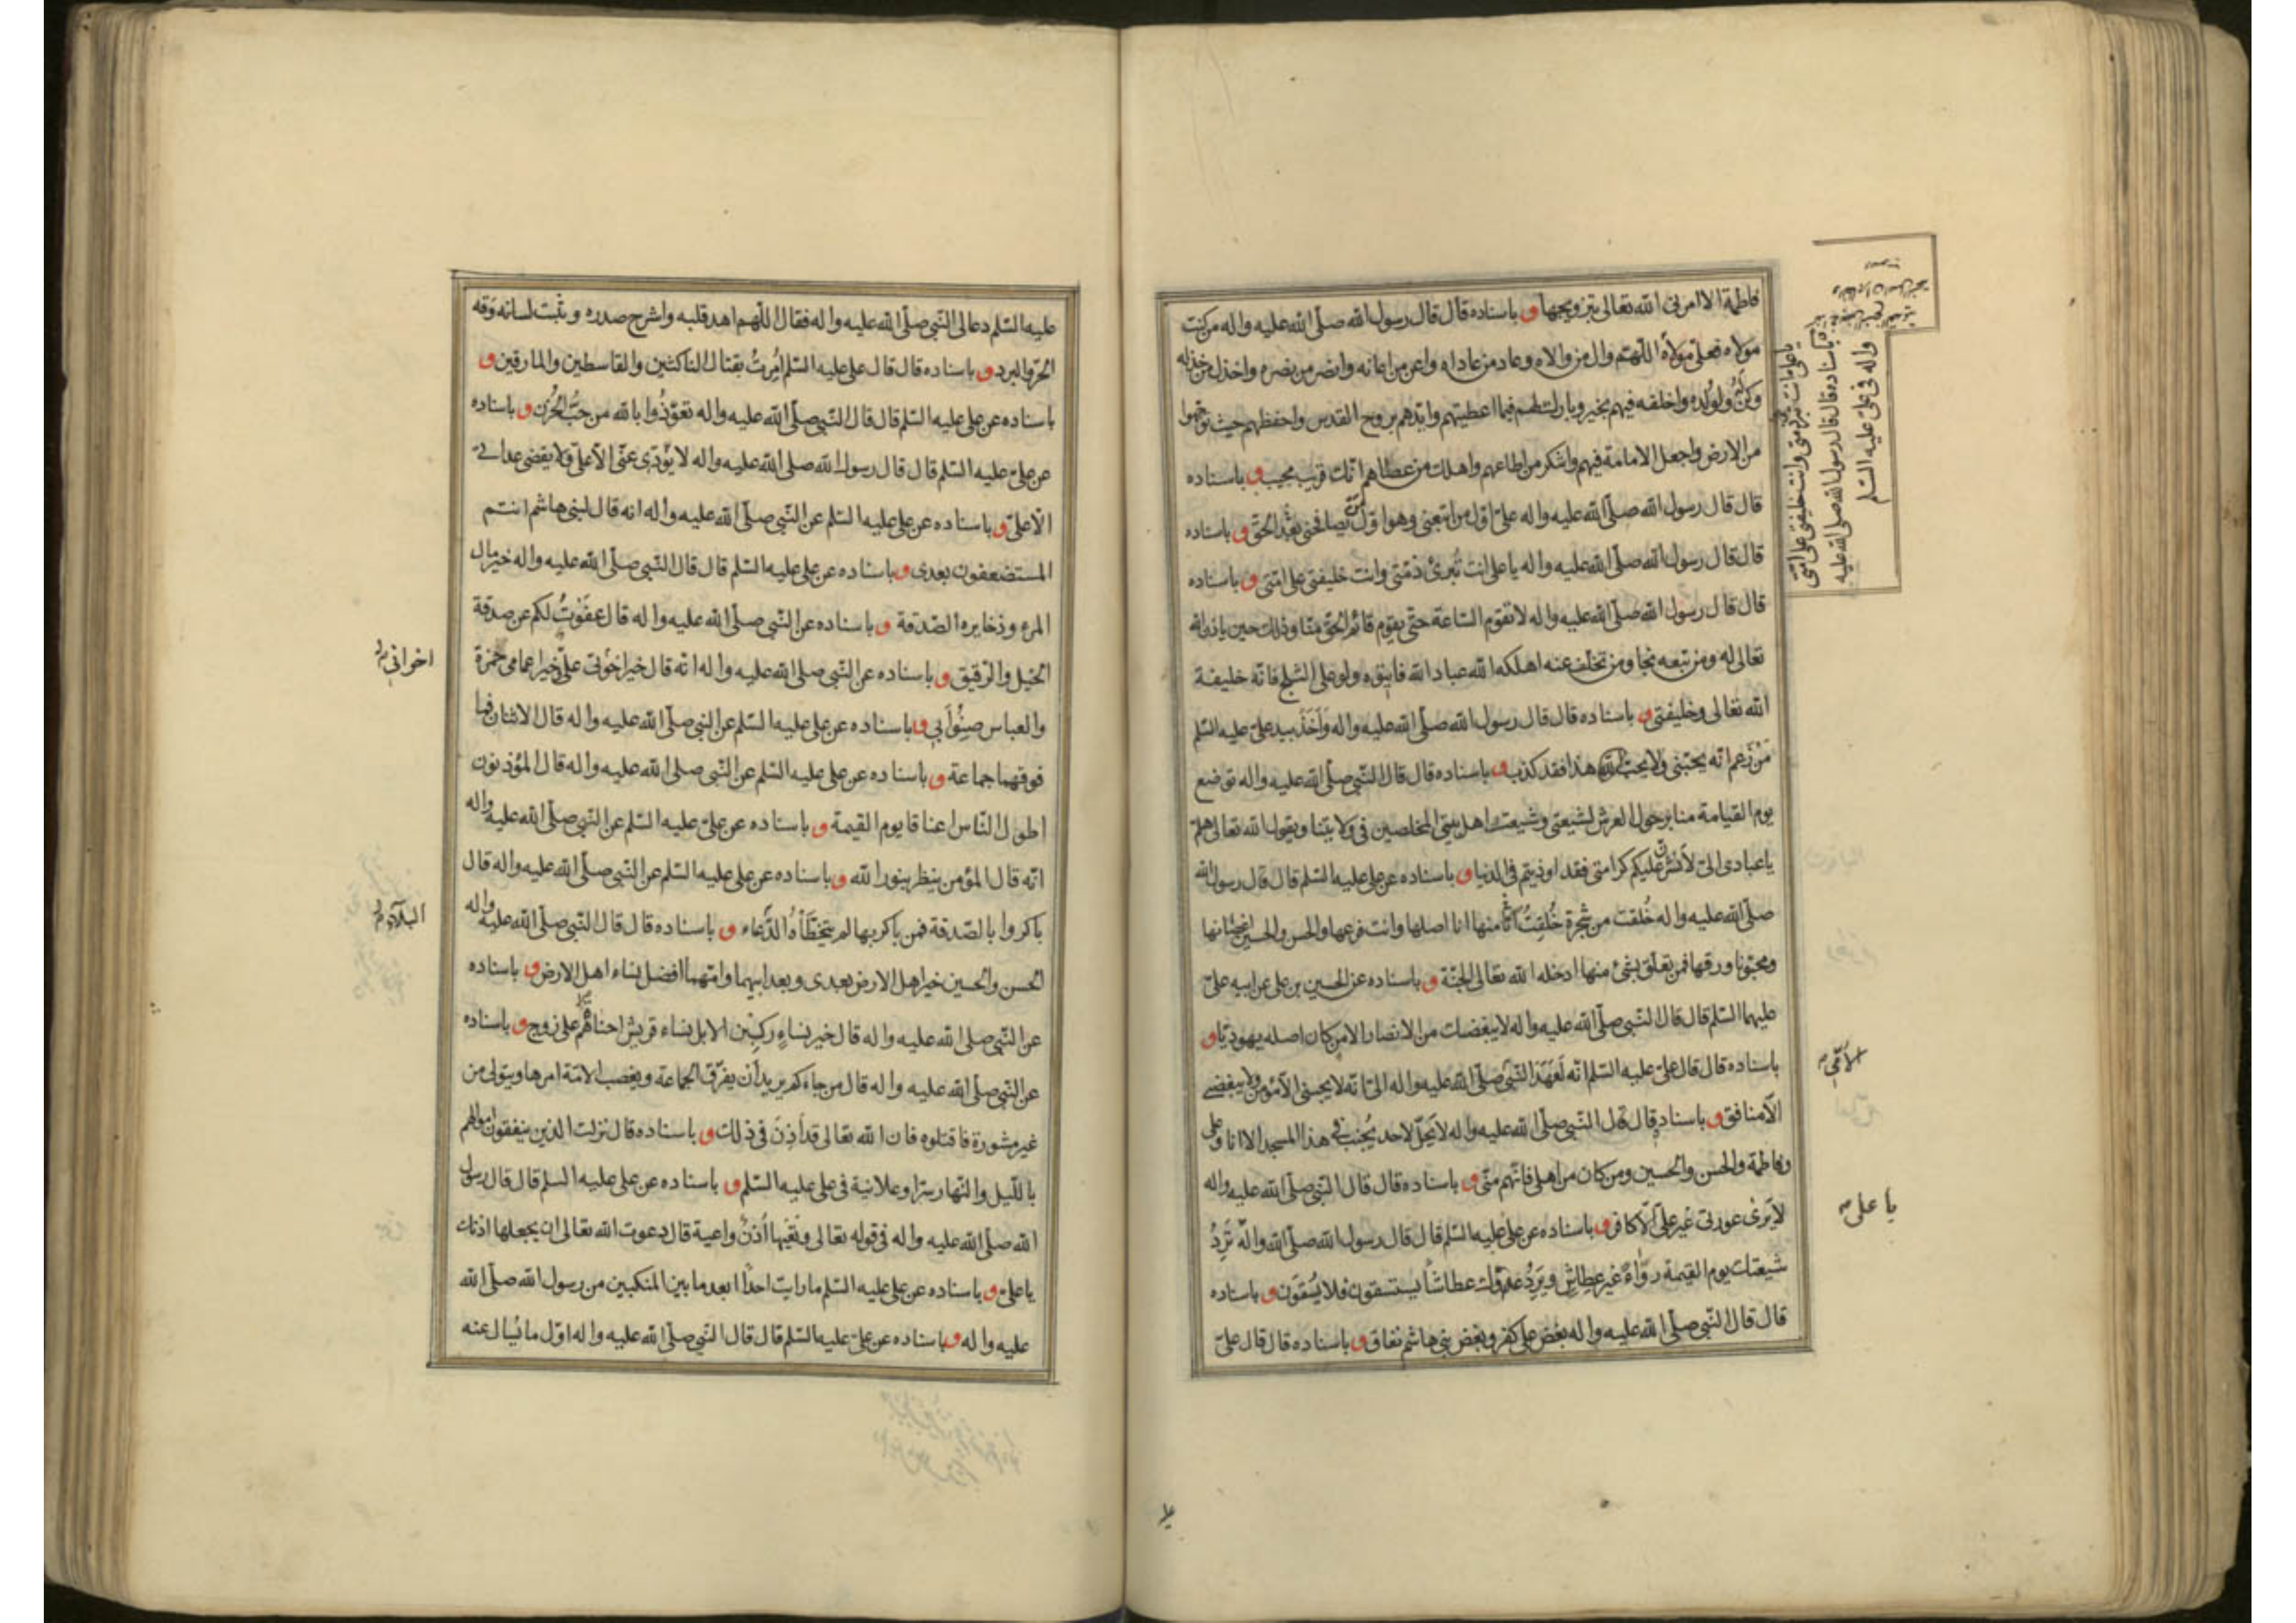 فاطمة الا امرنی الله تعالی بتزویجها و باسناده قال قال رسول الله صلّی الله علیه واله من کنت
مولاه فعلیّ مولاه اللّهمّ وال من والاه وعاد من عاداه واعن من اعانه وانصر من نصره واخذل من خذله
وکن له ولولده واخلفه فیهم بخیر وبارک لهم فیما اعطیتهم وایّدهم بروح القدس واحفظهم حیث توجّهوا
من الارض واجعل الامامة فیهم واشکر من اطاعهم واهلک من عصاهم انّک قریب مجیب و باسناده
قال قال رسول الله صلّی الله علیه واله علیّ اوّل من اتّبعنی وهو اوّل من یصافحنی بعد الحقّ و باسناده
قال قال رسول الله صلّی الله علیه واله یا علی انت تُبرئ ذمّتی وانت خلیفتی علی امّتی و باسناده
قال قال رسول الله صلّی الله علیه واله لا تقوم السّاعة حتّی یقوم قائم الحقّ منّا وذلک حین یاذن الله
تعالی له ومن تبعه نجا ومن تخلّف عنه اهلکه الله عباد الله فایتوه ولو علی الثلج فانّه خلیفة
الله تعالی وخلیفتی و باسناده قال قال رسول الله صلّی الله علیه واله وَاَخَذَ بید علیّ علیه السّلم
مَنْ زعم انّه یحبّنی ولا یحبّ هذا فقد کذب و باسناده قال قال النّبی صلّی الله علیه واله توضع
یوم القیامة منابر حول العرش لشیعتی وشیعت اهل بیتی المخلصین فی ولایتنا ویقول الله تعالی هلمّ
یا عبادی الیّ لاَنشرنّ علیکم کرامتی فقد اوذیتم فی الدنیا و باسناده عن علی علیه السّلم قال قال رسول الله
صلّی الله علیه واله خُلقت من شجرة خُلِقتَ انت منها انا اصلها وانت فرعها والحسن والحسین اغصانها
ومحبّونا ورقها فمن تعلّق بشئ منها ادخله الله تعالی الجنّة و باسناده عن الحسین بن علی عن ابیه علیّ
علیهما السّلم قال قال النّبی صلّی الله علیه واله لا یبغضک من الانصار الا من کان اصله یهودیّا و
باسناده قال قال علیّ علیه السّلم انّه لَعَهد النّبی صلّی الله علیه واله الیّ انّه لا یحبنی الا مؤمن ولا یبغضنی
الّا منافق و باسناده قال قال النّبی صلّی الله علیه واله لا یَحِلّ لاحد یُجنب فی هذا المسجد الا انا وعلی
وفاطمة والحسن والحسین ومن کان من اهلی فانّهم منّی و باسناده قال قال النّبی صلّی الله علیه واله
لا یَری عورتی غیر علیّ الّا کافر و باسناده عن علی علیه السّلم قال قال رسول الله صلّی الله واله تَرِدُ
شیعتک یوم القیمة رواءً غیر عِطاشٍ ویَرِدُ عدوّک عطاشاً یستسقون فلا یُسْقَون و باسناده
قال قال النّبی صلّی الله علیه واله بغض علی کفر وبغض بنی هاشم نفاق و باسناده قال قال علیّ
یا علی انت تبرئ ذمّتی وانت خلیفتی علی امّتی
و باسناده قال قال رسول الله صلّی الله علیه
واله فی علیّ علیه السّلم
یا علی
علیه السّلم دعا لی النّبی صلّی الله علیه واله فقال اللّهم اهد قلبه واشرح صدره وثبّت لسانه وقه
الحَرّ والبرد و باسناده قال قال علی علیه السّلم اُمِرتُ بقتال الناکثین والقاسطین والمارقین و
باسناده عن علی علیه السّلم قال قال النّبی صلّی الله علیه واله تعوّذُوا بالله من جبّ الحُزن و باسناده
عن علیّ علیه السّلم قال قال رسول الله صلی الله علیه واله لا یؤدّی عنّی الّا علیّ ولا یقضی عداتی
الّا علیّ و باسناده عن علی علیه السّلم عن النّبی صلّی الله علیه واله انه قال لبنی هاشم انتم
المستضعفون بعدی و باسناده عن علی علیه السّلم قال قال النّبی صلّی الله علیه واله خیر مال
المرء وذخایره الصّدقة و باسناده عن النّبی صلّی الله علیه واله قال عفَوْتُ لکم عن صدقة
الخیل والرّقیق و باسناده عن النّبی صلّی الله علیه واله انّه قال خیر اخوتی علیّ وخیر اعمامی حمزة
والعباس صِنْوُ اَبی و باسناده عن علی علیه السّلم عن النبی صلّی الله علیه واله قال الاثنان فما
فوقهما جماعة و باسناده عن علی علیه السّلم عن النّبی صلی الله علیه واله قال المؤذنون
اطول النّاس اعناقا یوم القیمة و باسناده عن علیّ علیه السّلم عن النّبی صلّی الله علیه واله
انّه قال المؤمن ینظر بنور الله و باسناده عن علی علیه السّلم عن النّبی صلّی الله علیه واله قال
باکروا بالصّدقة فمن باکر بها لم یتخطّاهُ الدُّعاء و باسناده قال قال النّبی صلّی الله علیه واله
الحسن والحسین خیر اهل الارض بعدی وبعد ابیهما وامّهما افضل نساء اهل الارض و باسناده
عن النّبی صلی الله علیه واله قال خیر نساءٍ رکبن الابل نساء قریش احناهم علی زوج و باسناده
عن النّبی صلّی الله علیه واله قال من جاءکم یرید اَن یفرّق الجماعة ویغصب الامّة امرها ویتولی من
غیر مشورة فاقتلوه فان الله تعالی قد اَذِنَ فی ذلک و باسناده قال نزلت الذین ینفقون اموالهم
باللّیل والنّهار سرّا وعلانیة فی علی علیه السّلم و باسناده عن علی علیه السلم قال قال رسول
الله صلّی الله علیه واله فی قوله تعالی وتعیها اُذنٌ واعیة قال دعوت الله تعالی ان یجعلها اذنک
یا علیّ و باسناده عن علی علیه السّلم ما رایت احدًا ابعد ما بین المنکبین من رسول الله صلّی الله
علیه واله و باسناده عن علیّ علیه السّلم قال قال النّبی صلّی الله علیه واله اوّل ما یُسال عنه
اخوانی
البلاء